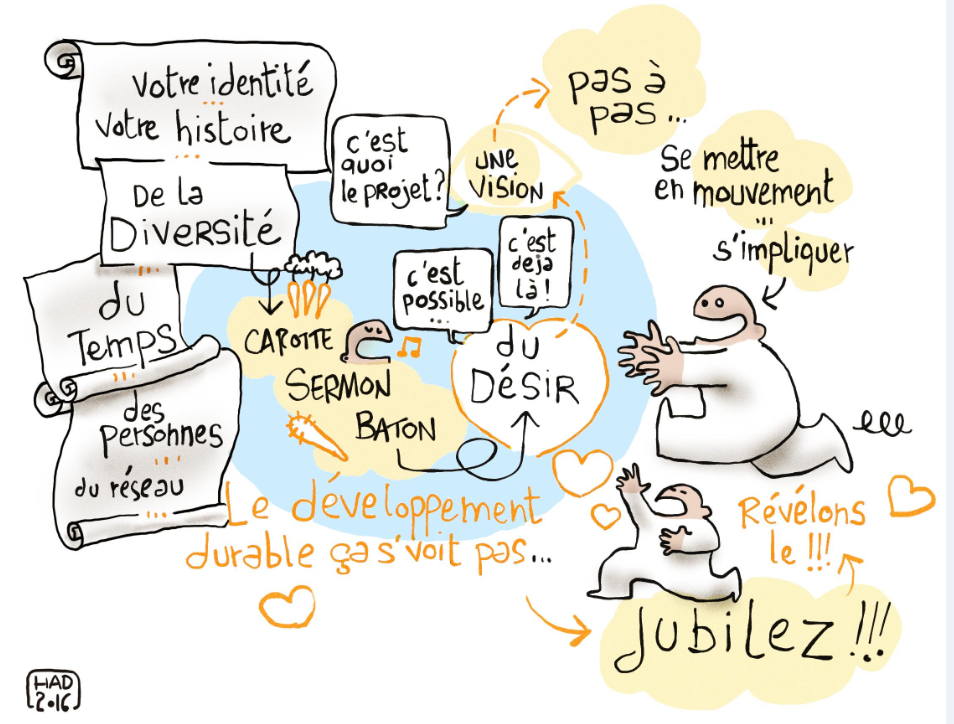 Votre identité
...
Votre histoire
...
De la
Diversité
...
du
Temps
...
des
personnes
...
du réseau
...
c'est
quoi
le projet?
UNE
VISION
pas à
pas...
Se mettre
en mouvement
...
s'impliquer
c'est
possible
...
c'est
deja
là!
CAROTTE
SERMON
BATON
du
DÉSIR
Le développement
durable ça s'voit pas...
Révélons
le !!!
Jubilez !!!
HAD
2.16